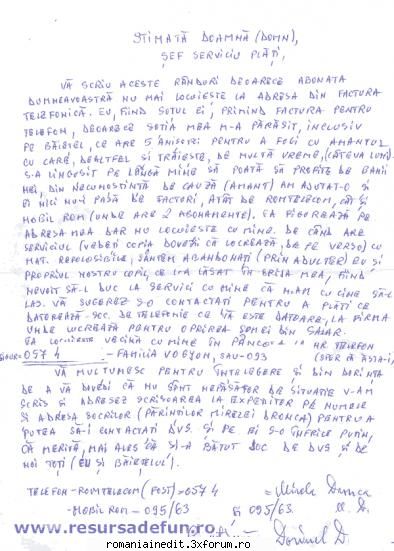 STIMATĂ DOAMNĂ (DOMN),
ȘEF SERVICIU PLĂȚI,
VĂ SCRIU ACESTE RÂNDURI DEOARECE ABONATA
DUMNEAVOASTRĂ NU MAI LOCUIEȘTE LA ADRESA DIN FACTURA
TELEFONICĂ. EU, FIIND SOȚUL EI, PRIMIND FACTURA PENTRU
TELEFON, DEOARECE SOȚIA MEA M-A PĂRĂSIT, INCLUSIV
PE BĂIEȚEL, CE ARE 5 ANIȘORI PENTRU A FUGI CU AMANTUL
CU CARE, DEALTFEL SI TRĂIEȘTE, DE MULTĂ VREME, (CÂTEVA LUNI).
S-A LINGUSIT PE LÂNGĂ MINE SĂ POATĂ SĂ PROFITE DE BANII
MEI, DIN NECUNOSTINTĂ DE CAUZĂ (AMANT) AM AJUTAT-O SI
EI NICI NU-I PASĂ DE FACTURI, ATÂT DE ROMTELECOM, CÂT ȘI
MOBIL ROM (UNDE ARE 2 ABONAMENTE). EA FIGUREAZĂ PE
ADRESA MEA DAR NU LOCUIESTE CU MINE. DE CÂND ARE
SERVICIUL (VEDEȚI COPIA DOVEZII CĂ LUCREAZĂ, DE PE VERSO) CU
MAT. REFOLOSIBILE, SÂNTEM ABANDONAȚI (PRIN ADULTER) EU SI
PROPRIUL NOSTRU COPIL, CE L-A LĂSAT ÎN GRIJA MEA, FIIND
NEVOIT SĂ-L DUC LA SERVICI CU MINE CĂ N-AM CU CINE SĂ-L
LAS. VĂ SUGEREZ S-O CONTACTATI PENTRU A PLĂTI CE
DATOREAZĂ SOC. DE TELEFONIE CE VĂ ESTE DATOARE, LA FIRMA
UNDE LUCREAZĂ PENTRU OPRIREA SUMEI DIN SALAR.
EA LOCUIESTE VECINĂ CU MINE ÎN PÂNCOTA LA NR. TELEFON
0574 - FAMILIA VOGYON, SAU-093 (SPER CĂ ĂSTA-I)
VĂ MULTUMESC PENTRU ÎNTELEGERE SI DIN DORINTA
DE A VĂ DOVEDI CĂ NU SUNT NEPĂSĂTOR DE SITUATIE V-AM
SCRIS SI ADRESEZ SCRISOAREA LA EXPEDITOR PE NUMELE
SI ADRESA SOCRILOR (PĂRINȚILOR MIRELEI DRONCA) PENTRU A
PUTEA SĂ-I CONTACTATI DVS. SI PE EI S-O ÎNFRICE PUȚIN,
CĂ MERITĂ, MAI ALES CĂ SI-A BĂTUT JOC DE DVS SI DE
NOI TOTI (EU SI BĂIETELUL).
TELEFON-ROMTELECOM (FOST)=0574
-MOBIL ROM - 095/63 SI 095/63.
www.resursadefun.ro
romaniainedit.3xforum.ro